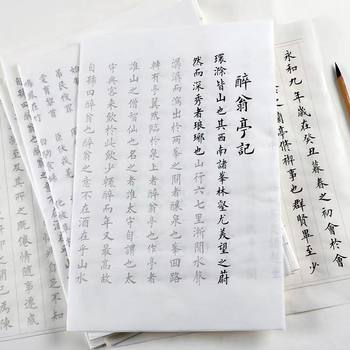 永和九年歲在癸丑暮春之初會於會
蘭亭脩禊事也群賢畢至少
醉翁亭記
環滁皆山也其西南諸峯林壑尤美望之蔚
然而深秀者琅琊也山行六七里漸聞水聲
潺潺而瀉出於兩峯之間者釀泉也峯回路
轉有亭翼然臨於泉上者醉翁亭也作亭者
誰山之僧智仙也名之者誰太守自謂也太
守與客來飲於此飲少輒醉而年又最高故
自號曰醉翁也醉翁之意不在酒在乎山水
弔民伐罪
愛育黎首 臣伏戎羌
及其所之既倦情隨事遷感
為陳